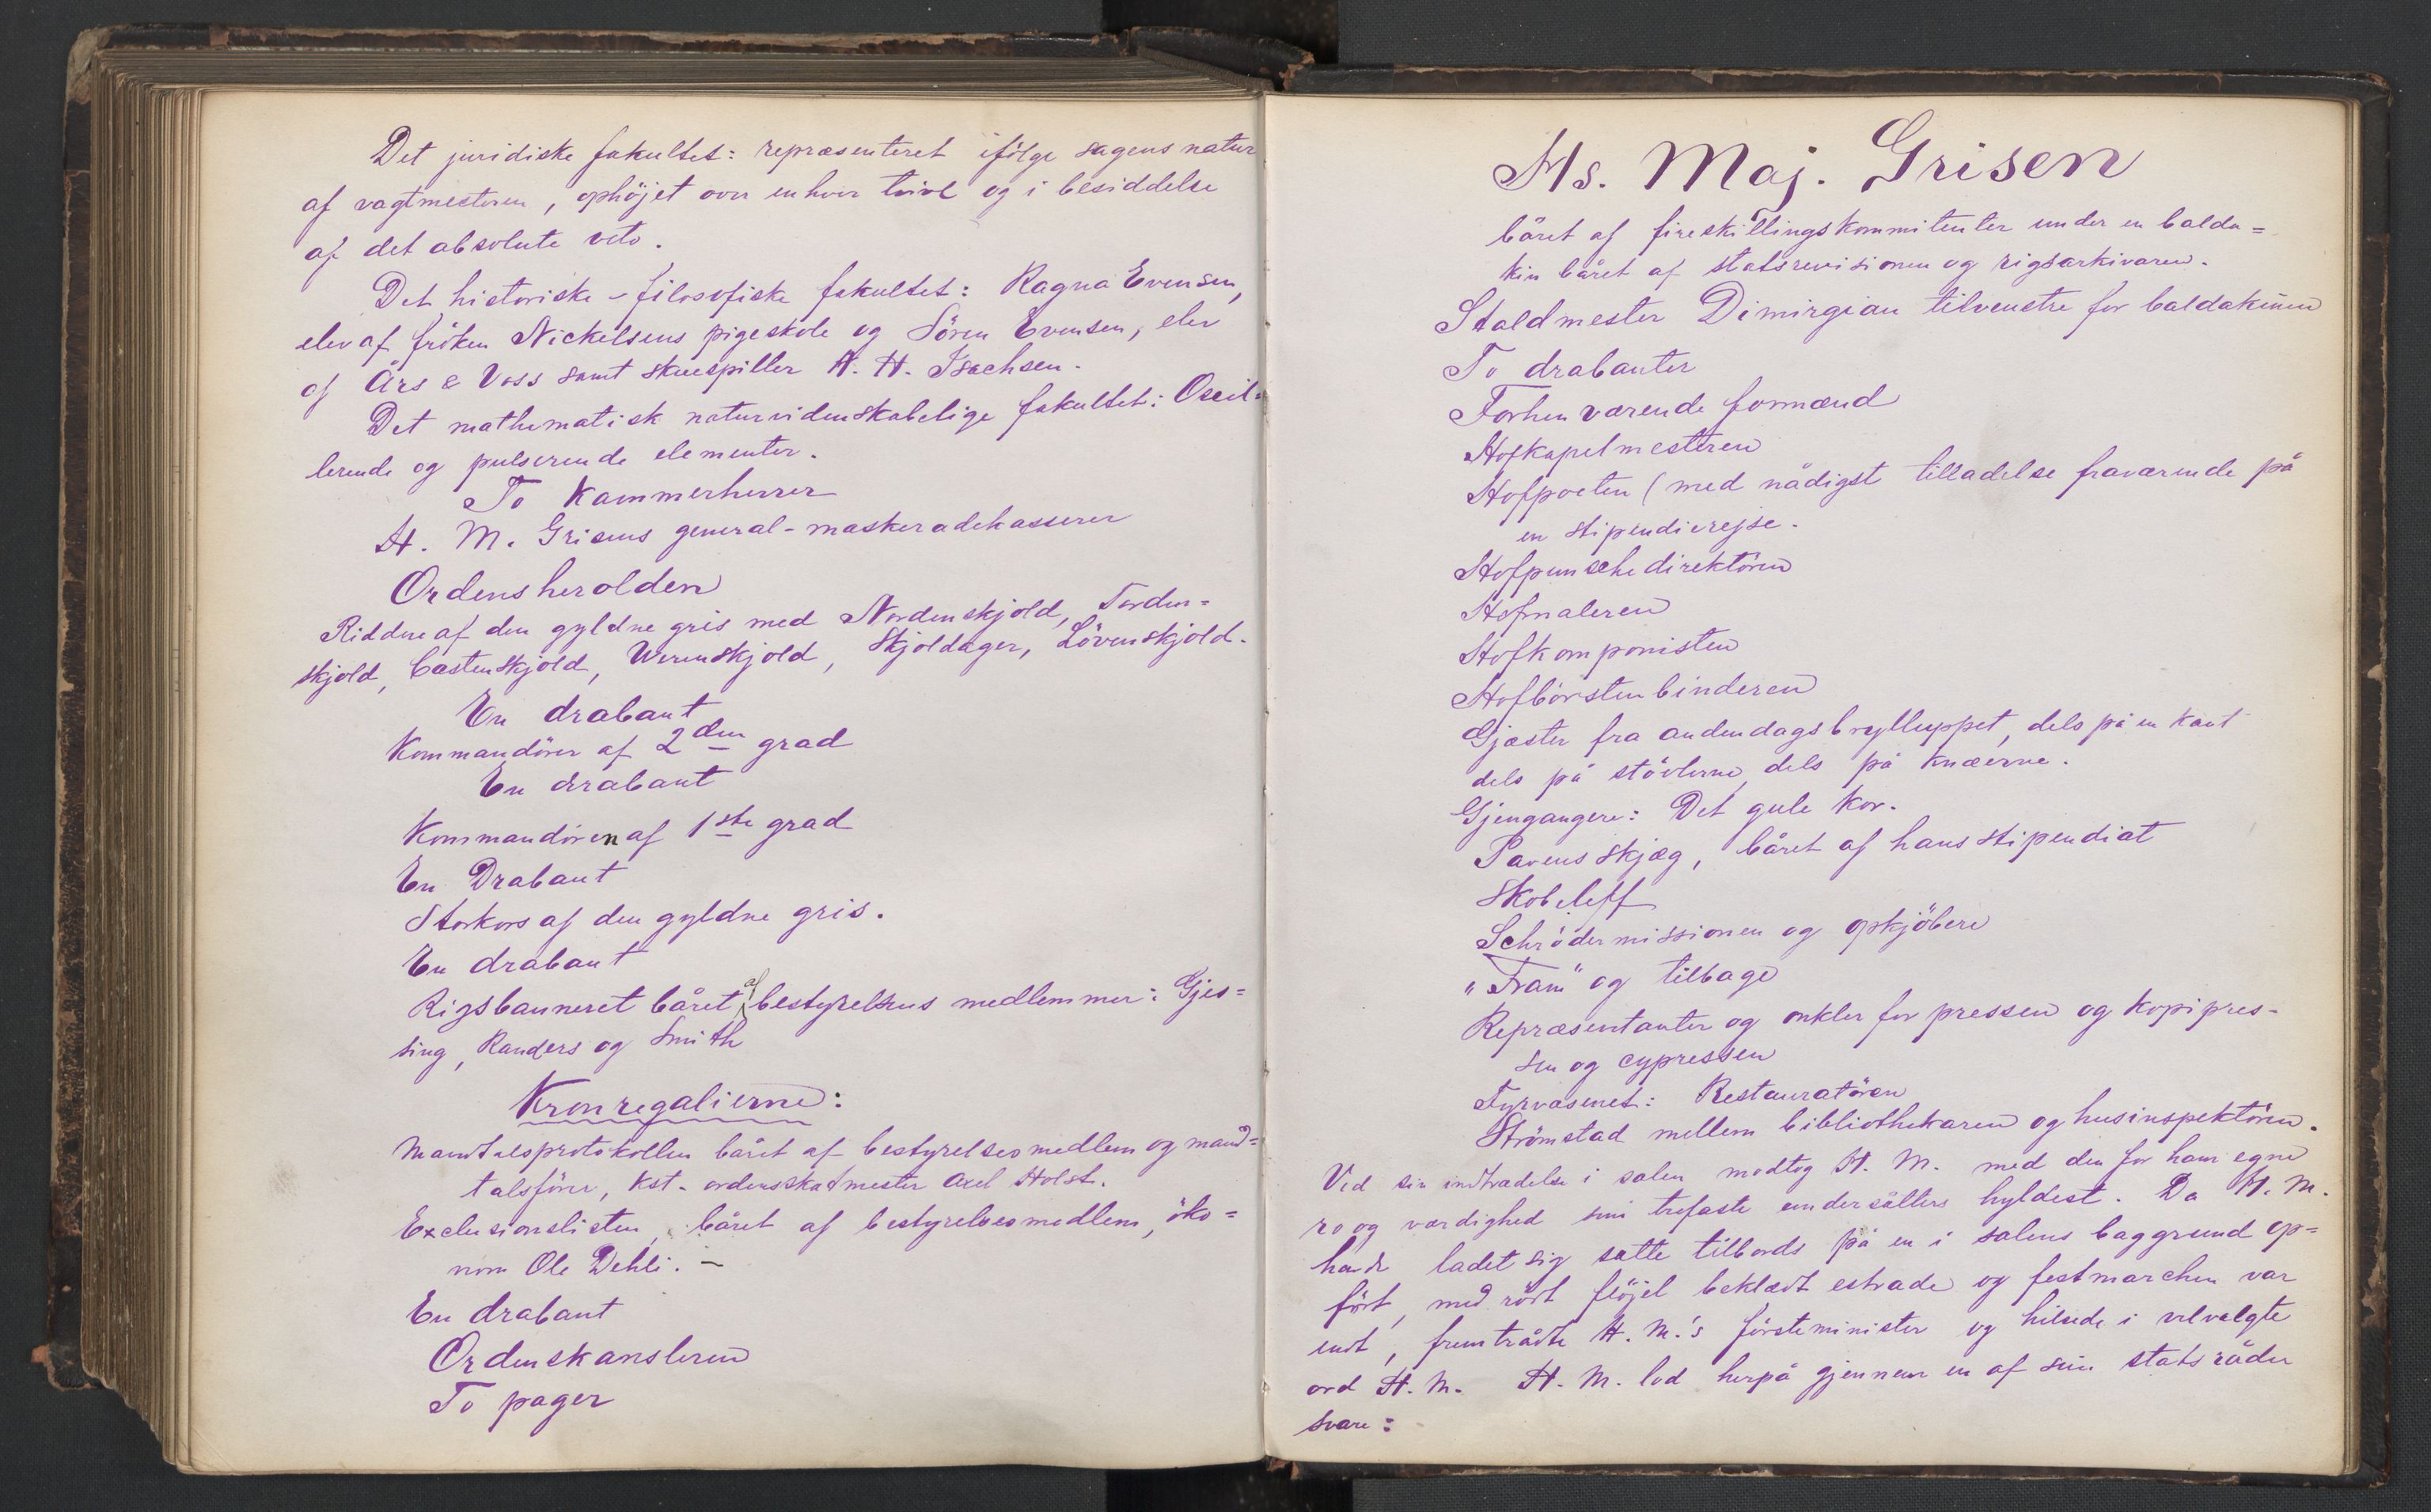 Det juridiske fakultet: repræsenteret ifölge sagens natur
af vagtmesteren, ophöjet over enhver tvivl og i besiddelse
af det absolute veto.
Det historiske-filosofiske fakultet: Ragna Evensen,
elev af fröken Nickelsens pigeskole og Sören Evensen, elev
af Ārs & Voss samt skuespiller H. H. Isachsen.
Det mathematisk naturvidenskabelige fakultet: Oscil=
lerende og pulserende elementer.
To Kammerherrer
H. M. Grisens general-maskeradekasserer
Ordensherolden
Riddere af den gyldne gris med Nordenskjold, Torden=
skjold, Castenskjold, Werenskjold, Skjoldager, Lövenskjold.
En drabant
Kommandörer af 2den grad
En drabant
Kommandören af 1ste grad
En Drabant
Storkors af den gyldne gris.
En drabant
Rigsbanneret båret af bestyrelsens medlemmer: Gjes=
sing, Randers og Smith
Kronregalierne:
Mandtalsprotokollen båret af bestyrelsesmedlem og mand=
talsförer, kst. ordensskatmester Axel Holst.
Exclusionslisten, båret af bestyrelsesmedlem, öko=
nom Ole Dehli. –
En drabant
Ordenskansleren
To pager
Hs. Maj. Grisen
båret af fireskillingskommitenter under en balda=
kin båret af statsrevisionen og rigsarkivaren.
Staldmester Dimirgian tilvenstre for baldakinen
To drabanter
Forhenværende formænd
Hofkapelmesteren
Hofpoeten (med nådigst tilladelse fraværende på
en stipendierejse.
Hofpunschedirektören
Hofmaleren
Hofkomponisten
Hofbörstenbinderen
Gjæster fra andendagsbrylluppet, dels på en kant
dels på stövlerne, dels på knæerne.
Gjengangere: Det gule kor.
Pavens skjæg, båret af hans stipendiat
Skobeleff
Schrödermissionen og opkjöbere
"Fram" og tilbage
Repræsentanter og onkler for pressen og kopipres-
sen og cypressen
Fyrvæsenet: Restauratören
Strömstad mellem bibliothekaren og husinspektören.
Ved sin indtrædelse i salen modtog H. M. med den for ham egne
ro og værdighed sine trofaste undersåtters hyldest. Da H. M.
havde ladet sig sætte tilbords på en i salens baggrund op=
fört, med rödt flöjel beklædt estrade og festmarchen var
endt, fremtrådte H. M.'s försteminister og hilsede i velvalgte
ord H. M. H. M. lod herpå gjennem en af sine statsråder
svare: